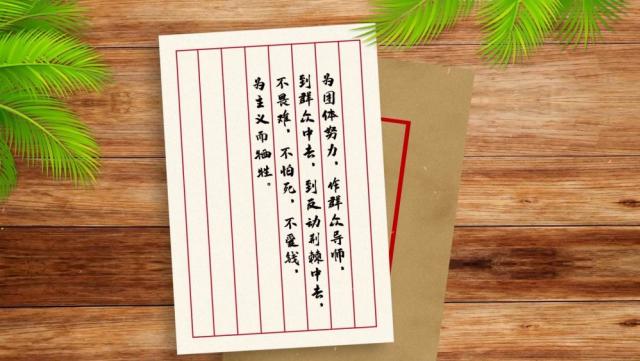 为团体努力，作群众导师，
到群众中去，到反动荆棘中去，
不畏难，不怕死，不爱钱，
为主义而牺牲。